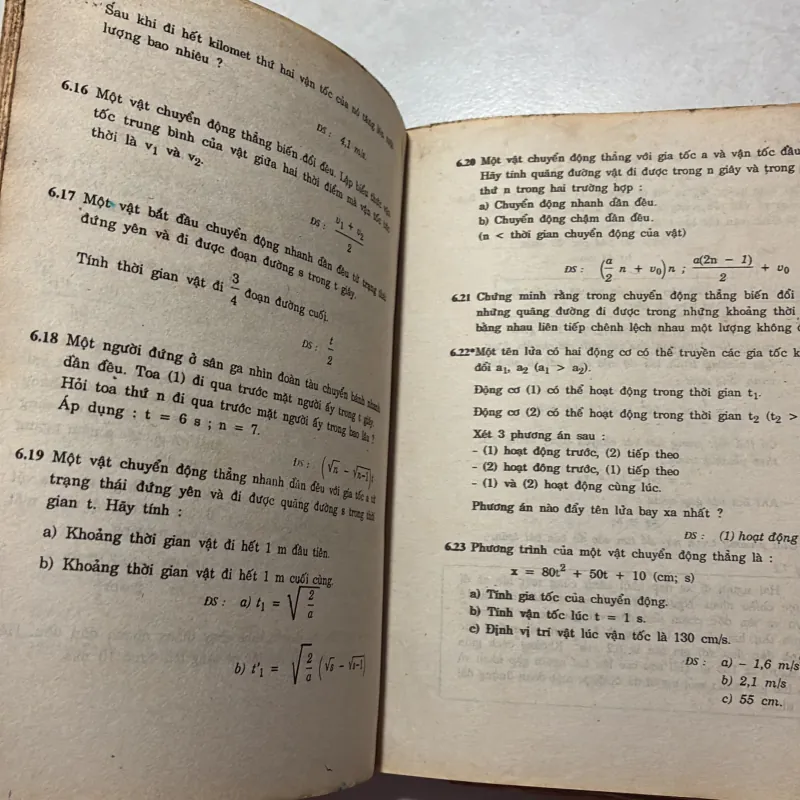 Sau khi đi hết kilomet thứ hai vận tốc của nó tăng lên một
lượng bao nhiêu ?
ĐS : 4,1 m/s.
6.16 Một vật chuyển động thẳng biến đổi đều. Lập biểu thức vận
tốc trung bình của vật giữa hai thời điểm mà vận tốc tức
thời là v₁ và v₂.
ĐS : (v₁ + v₂)/2
6.17 Một vật bắt đầu chuyển động nhanh dần đều từ trạng thái
đứng yên và đi được đoạn đường s trong t giây.
Tính thời gian vật đi 3/4 đoạn đường cuối.
ĐS : t/2
6.18 Một người đứng ở sân ga nhìn đoàn tàu chuyển bánh nhanh
dần đều. Toa (1) đi qua trước mặt người ấy trong t giây.
Hỏi toa thứ n đi qua trước mặt người ấy trong bao lâu ?
Áp dụng : t = 6 s ; n = 7.
ĐS : (√n − √n-1)t
6.19 Một vật chuyển động thẳng nhanh dần đều với gia tốc a từ
trạng thái đứng yên và đi được quãng đường s trong thời
gian t. Hãy tính :
a) Khoảng thời gian vật đi hết 1 m đầu tiên.
b) Khoảng thời gian vật đi hết 1 m cuối cùng.
ĐS : a) t₁ = √(2/a)
b) t'₁ = √(2/a) (√s − √s-1)
6.20 Một vật chuyển động thẳng với gia tốc a và vận tốc đầu
Hãy tính quãng đường vật đi được trong n giây và trong
thứ n trong hai trường hợp :
a) Chuyển động nhanh dần đều.
b) Chuyển động chậm dần đều.
(n < thời gian chuyển động của vật)
ĐS : (a/2 n + v₀)n ; a(2n − 1)/2 + v₀
6.21 Chứng minh rằng trong chuyển động thẳng biến đổi
những quãng đường đi được trong những khoảng thời
bằng nhau liên tiếp chênh lệch nhau một lượng không
6.22* Một tên lửa có hai động cơ có thể truyền các gia tốc k
đổi a₁, a₂ (a₁ > a₂).
Động cơ (1) có thể hoạt động trong thời gian t₁.
Động cơ (2) có thể hoạt động trong thời gian t₂ (t₂ >
Xét 3 phương án sau :
- (1) hoạt động trước, (2) tiếp theo
- (2) hoạt đông trước, (1) tiếp theo
- (1) và (2) hoạt động cùng lúc.
Phương án nào đẩy tên lửa bay xa nhất ?
ĐS : (1) hoạt động
6.23 Phương trình của một vật chuyển động thẳng là :
x = 80t² + 50t + 10 (cm; s)
a) Tính gia tốc của chuyển động.
b) Tính vận tốc lúc t = 1 s.
c) Định vị trí vật lúc vận tốc là 130 cm/s.
ĐS : a) − 1,6 m/s
b) 2,1 m/s
c) 55 cm.